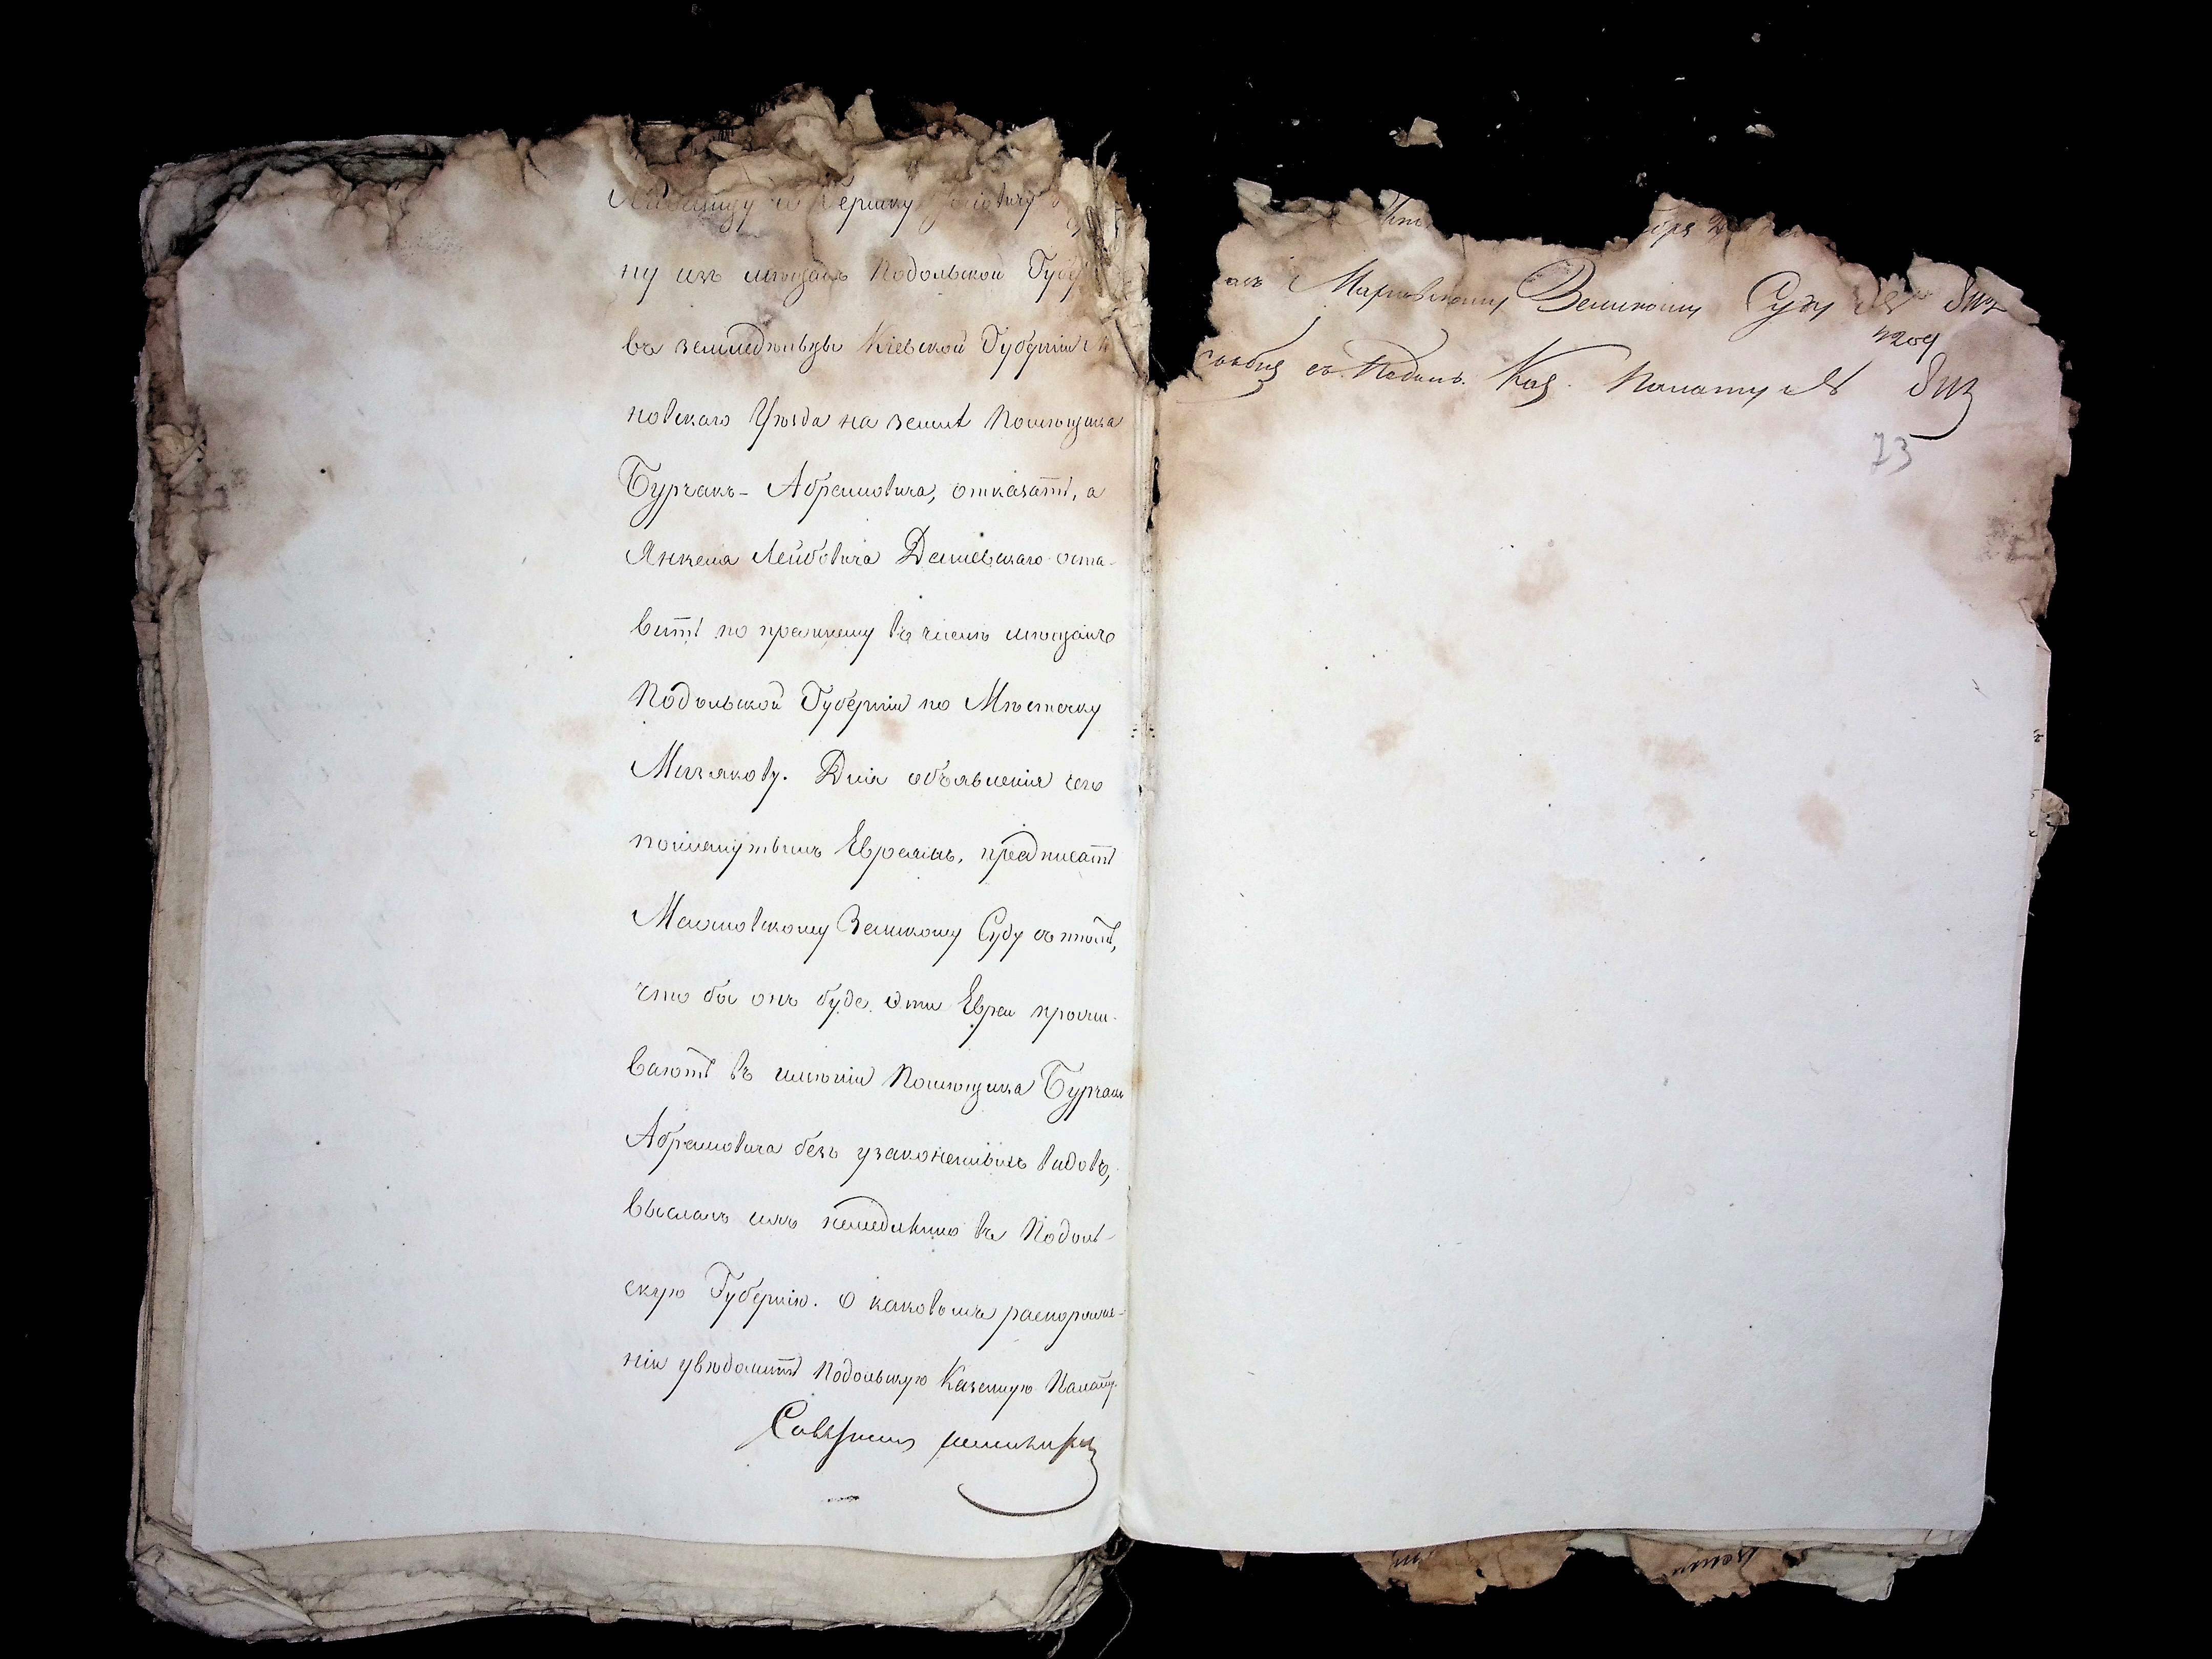 и Гершку
ну изъ мѣщанъ Подольской Губер
въ земледѣльцы Кіевской Губерніи
новскаго Уѣзда на землѣ Помѣщика
Бурчакъ-Абрамовича, отказать, а
Янкеля Лейбовича Дашевскаго оста-
вить по прежнему въ числѣ мѣщанъ
Подольской Губерніи по Мѣстечку
Мизякову. Для объявленія сего
помянутымъ Евреямъ, предписать
Махновскому Земскому Суду съ тѣмъ,
что бы онъ буде эти Евреи прожи-
ваютъ въ имѣніи Помѣщика Бурчакъ
Абрамовича безъ узаконенныхъ видовъ,
выслалъ ихъ немедленно въ Подоль-
скую Губернію. О каковомъ распоряже-
ніи увѣдомить Подольскую Казенную Палату.
Совѣтникъ
бря 2
Земскому Суду №
въ Подол. Каз. Палату №
73